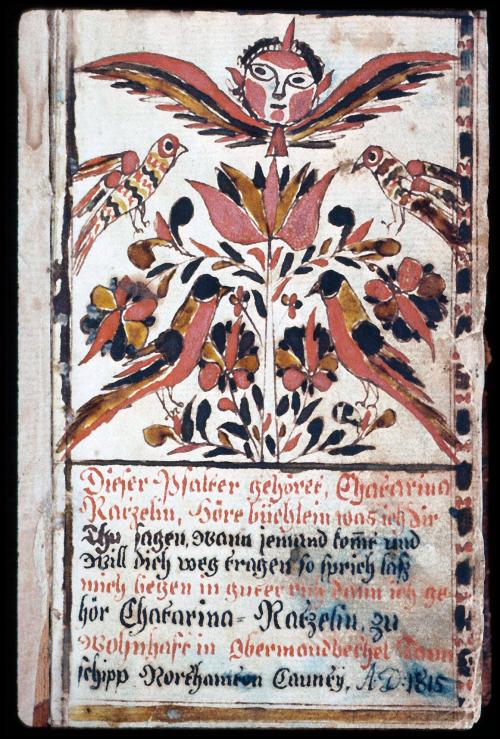 Dieser Psalter gehöret, Chatarina
Ratzelin, Höre büchlein was ich dir
Thu sagen, Wann jemand komt und
Will dich weg tragen so sprich laß
mich liegen in guter ruh dann ich ge-
hör Chatarina= Ratzelin, zu
Wohnhaft in Obermaudbechel Taun
schipp Northamton Caunty, A D: 1815